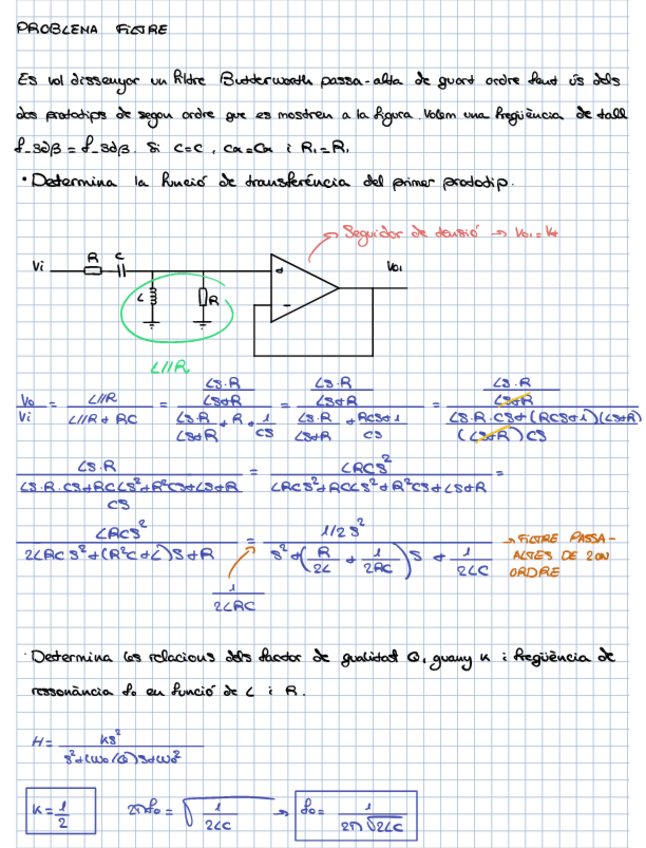 PROBLEMA FILTRE
Es vol dissenyar un filtre Butterworth passa-alta de quart ordre fent ús dels
dos prototips de segon ordre que es mostren a la figura. Volem una freqüència de tall
f-3dβ = f-3dβ. Si C=C, Cα=Cα i R₁=R₁
• Determina la funció de transferència del primer prototip.
Seguidor de tensió → Vo1 = V+
Vi R C L R + - Vo1
L//R
Vo/Vi = L//R / (L//R + RC) = (LS·R/(LS+R)) / (LS·R/(LS+R) + R + 1/CS) = (LS·R/(LS+R)) / (LS·R/(LS+R) + (RCS+1)/CS) = (LS·R/(LS+R)) / ((LS·R·CS+(RCS+1)(LS+R))/((LS+R)CS))
LS·R / ((LS·R·CS+RCLS²+R²CS+LS+R)/CS) = LRCS² / (LRCS²+RCLS²+R²CS+LS+R) =
LRCS² / (2LRCS²+(R²C+L)S+R) = 1/2 S² / (S²+(R/2L + 1/2RC)S + 1/2LC) → FILTRE PASSA-
ALTES DE 2ON
ORDRE
1/2LRC
· Determina les relacions dels factor de qualitat Q, guany K i freqüència de
ressonància fo en funció de L i R.
H = KS² / (S²+(ωo/Q)S+ωo²)
K = 1/2 2πfo = √(1/2LC) → fo = 1/(2π√2LC)